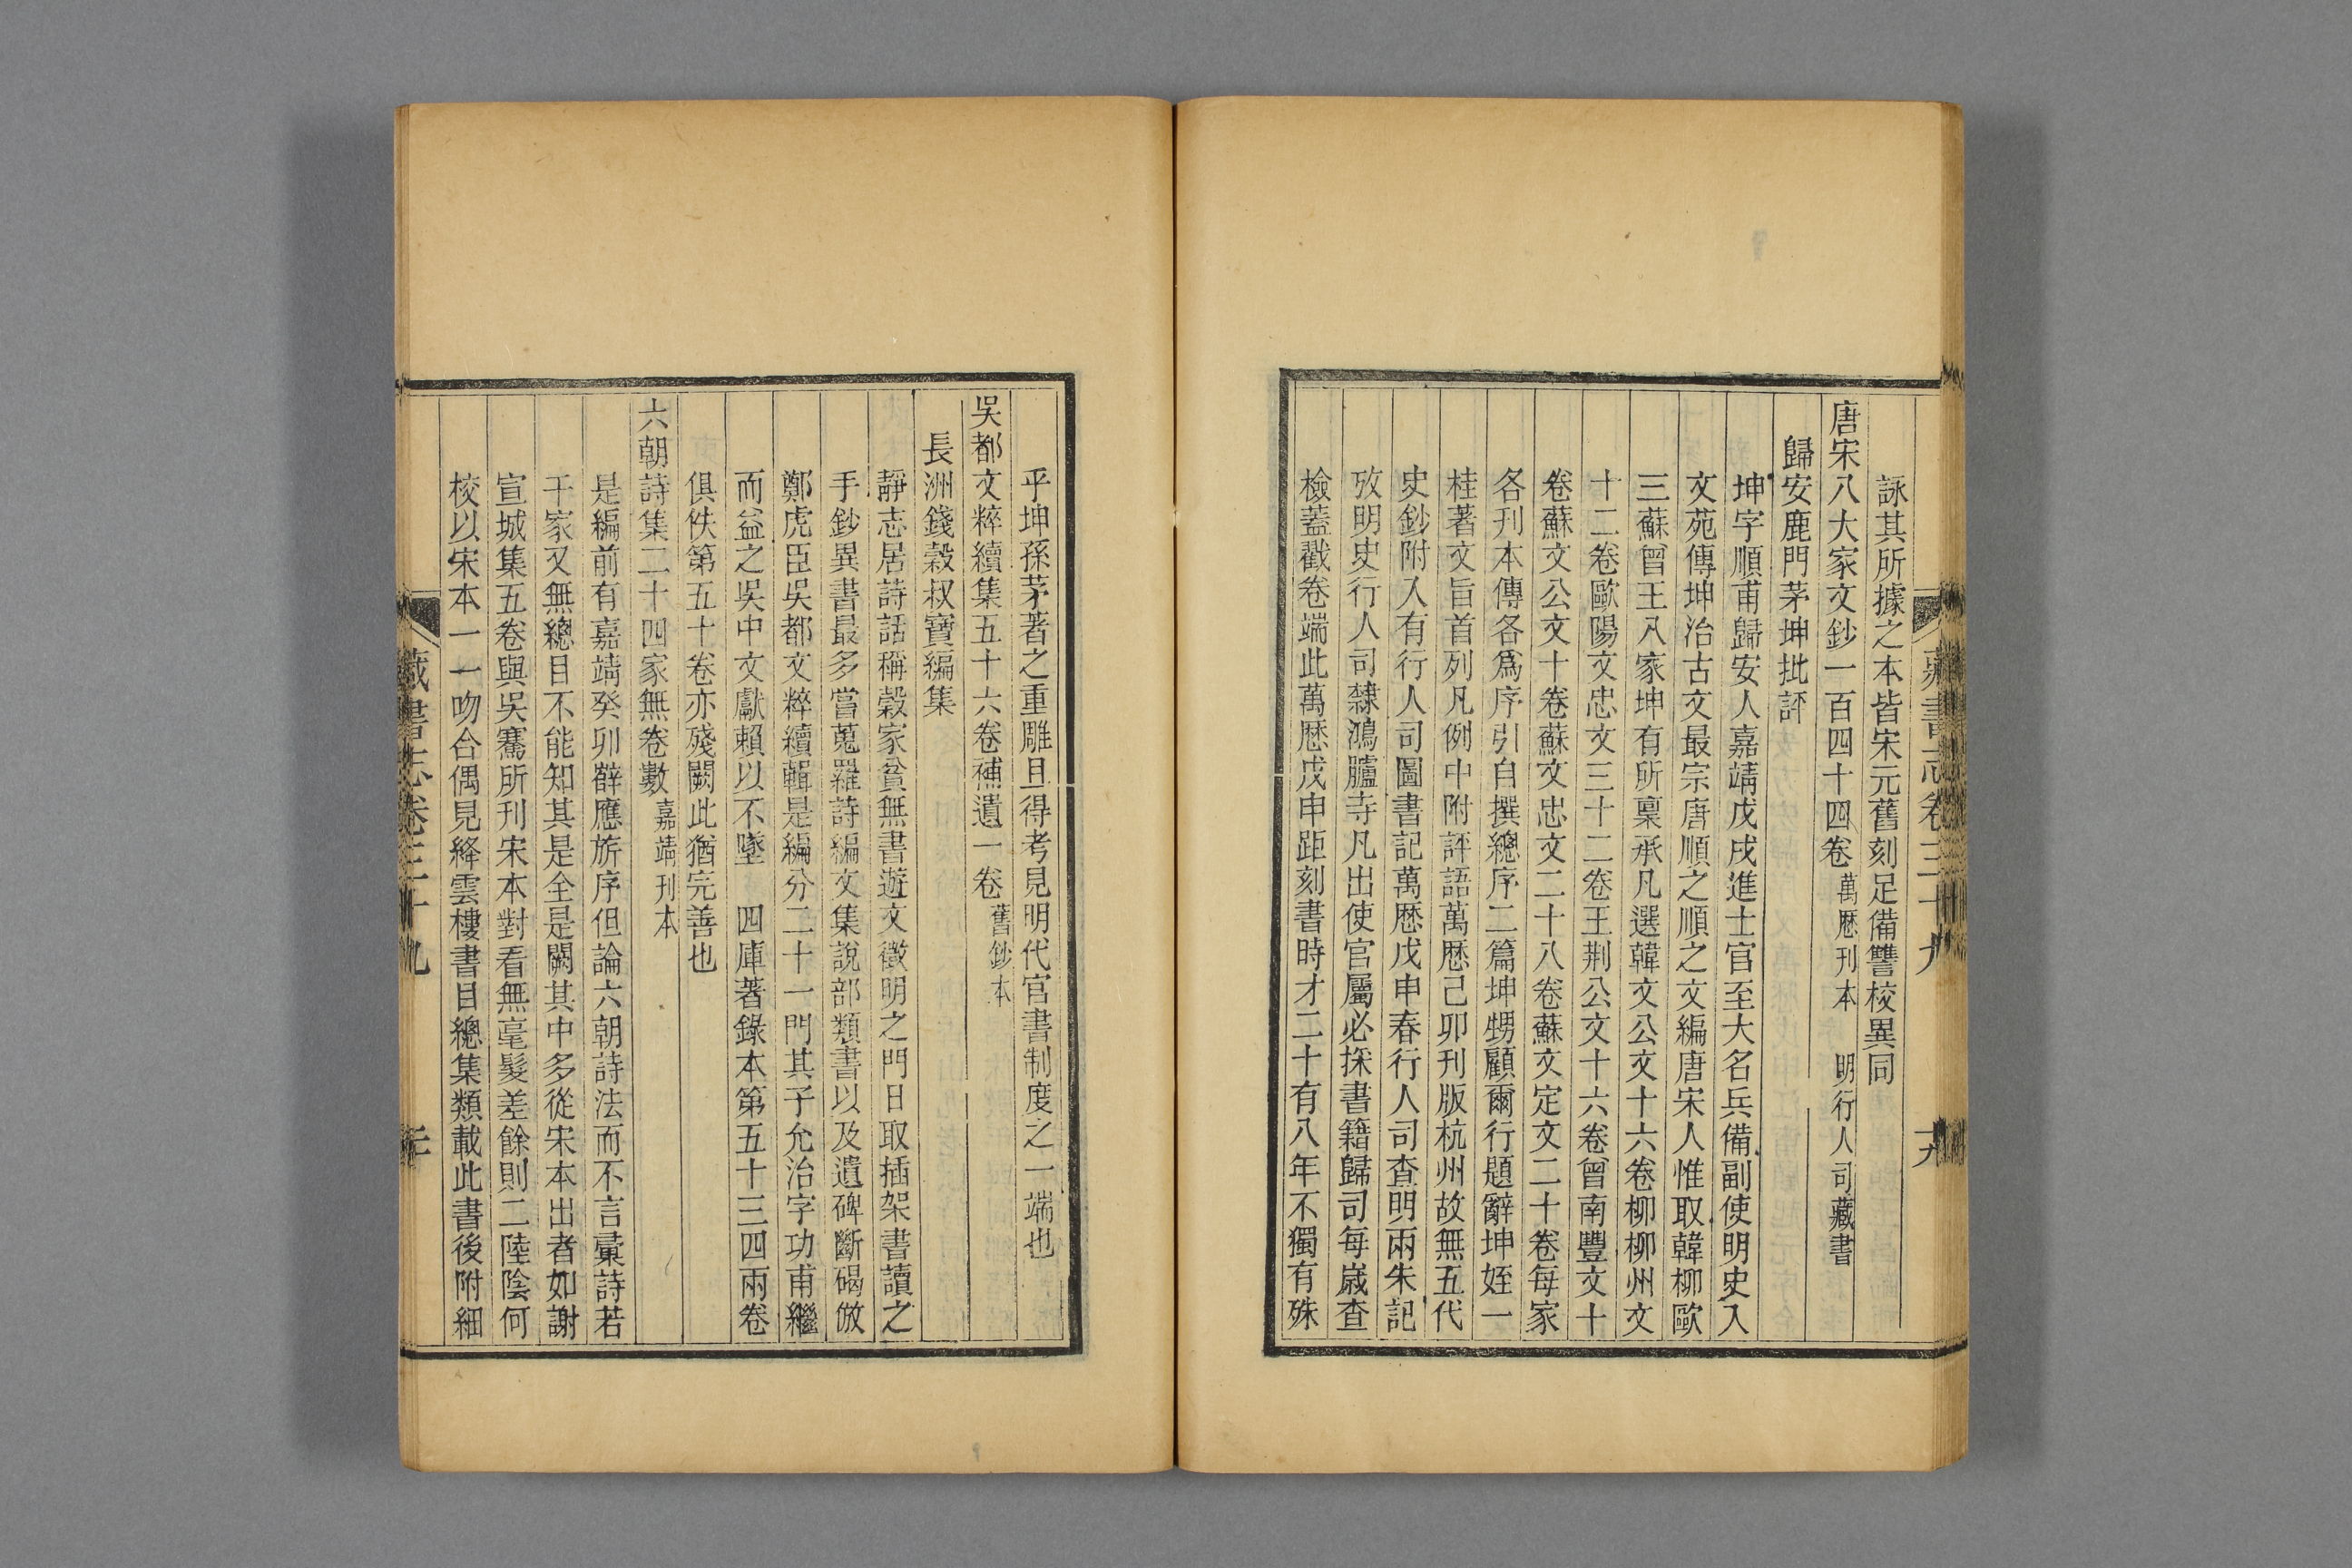 詠其所據之本皆宋元舊刻足備讐校異同
唐宋八大家文鈔一百四十四卷 萬歷刊本 明行人司藏書
歸安鹿門茅坤批評
坤字順甫歸安人嘉靖戊戌進士官至大名兵備副使明史入
文苑傳坤治古文最宗唐順之順之文編唐宋人惟取韓柳歐
三蘇曾王八家坤有所稟承凡選韓文公文十六卷柳柳州文
十二卷歐陽文忠文三十二卷王荆公文十六卷曾南豐文十
卷蘇文公文十卷蘇文忠文二十八卷蘇文定文二十卷每家
各刊本傳各爲序引自撰總序二篇坤甥顧爾行題辭坤姪一
桂著文旨首列凡例中附評語萬歷己卯刊版杭州故無五代
史鈔附入有行人司圖書記萬歷戊申春行人司查明兩朱記
攷明史行人司隸鴻臚寺凡出使官屬必採書籍歸司每嵗查
檢蓋戳卷端此萬歷戊申距刻書時才二十有八年不獨有殊
藏書志卷三十九 十九
乎坤孫茅著之重雕且得考見明代官書制度之一端也
吳都文粹續集五十六卷補遺一卷 舊鈔本
長洲錢穀叔寶編集
靜志居詩話稱穀家貧無書遊文徵明之門日取插架書讀之
手鈔異書最多嘗蒐羅詩編文集說部類書以及遺碑斷碣倣
鄭虎臣吳都文粹續輯是編分二十一門其子允治字功甫繼
而益之吳中文獻賴以不墜 四庫著錄本第五十三四兩卷
俱佚第五十卷亦殘闕此猶完善也
六朝詩集二十四家無卷數 嘉靖刊本
是編前有嘉靖癸卯薛應旂序但論六朝詩法而不言彙詩若
干家又無總目不能知其是全是闕其中多從宋本出者如謝
宣城集五卷與吳騫所刊宋本對看無毫髮差餘則二陸陰何
校以宋本一一吻合偶見絳雲樓書目總集類載此書後附細
藏書志卷三十九 二十